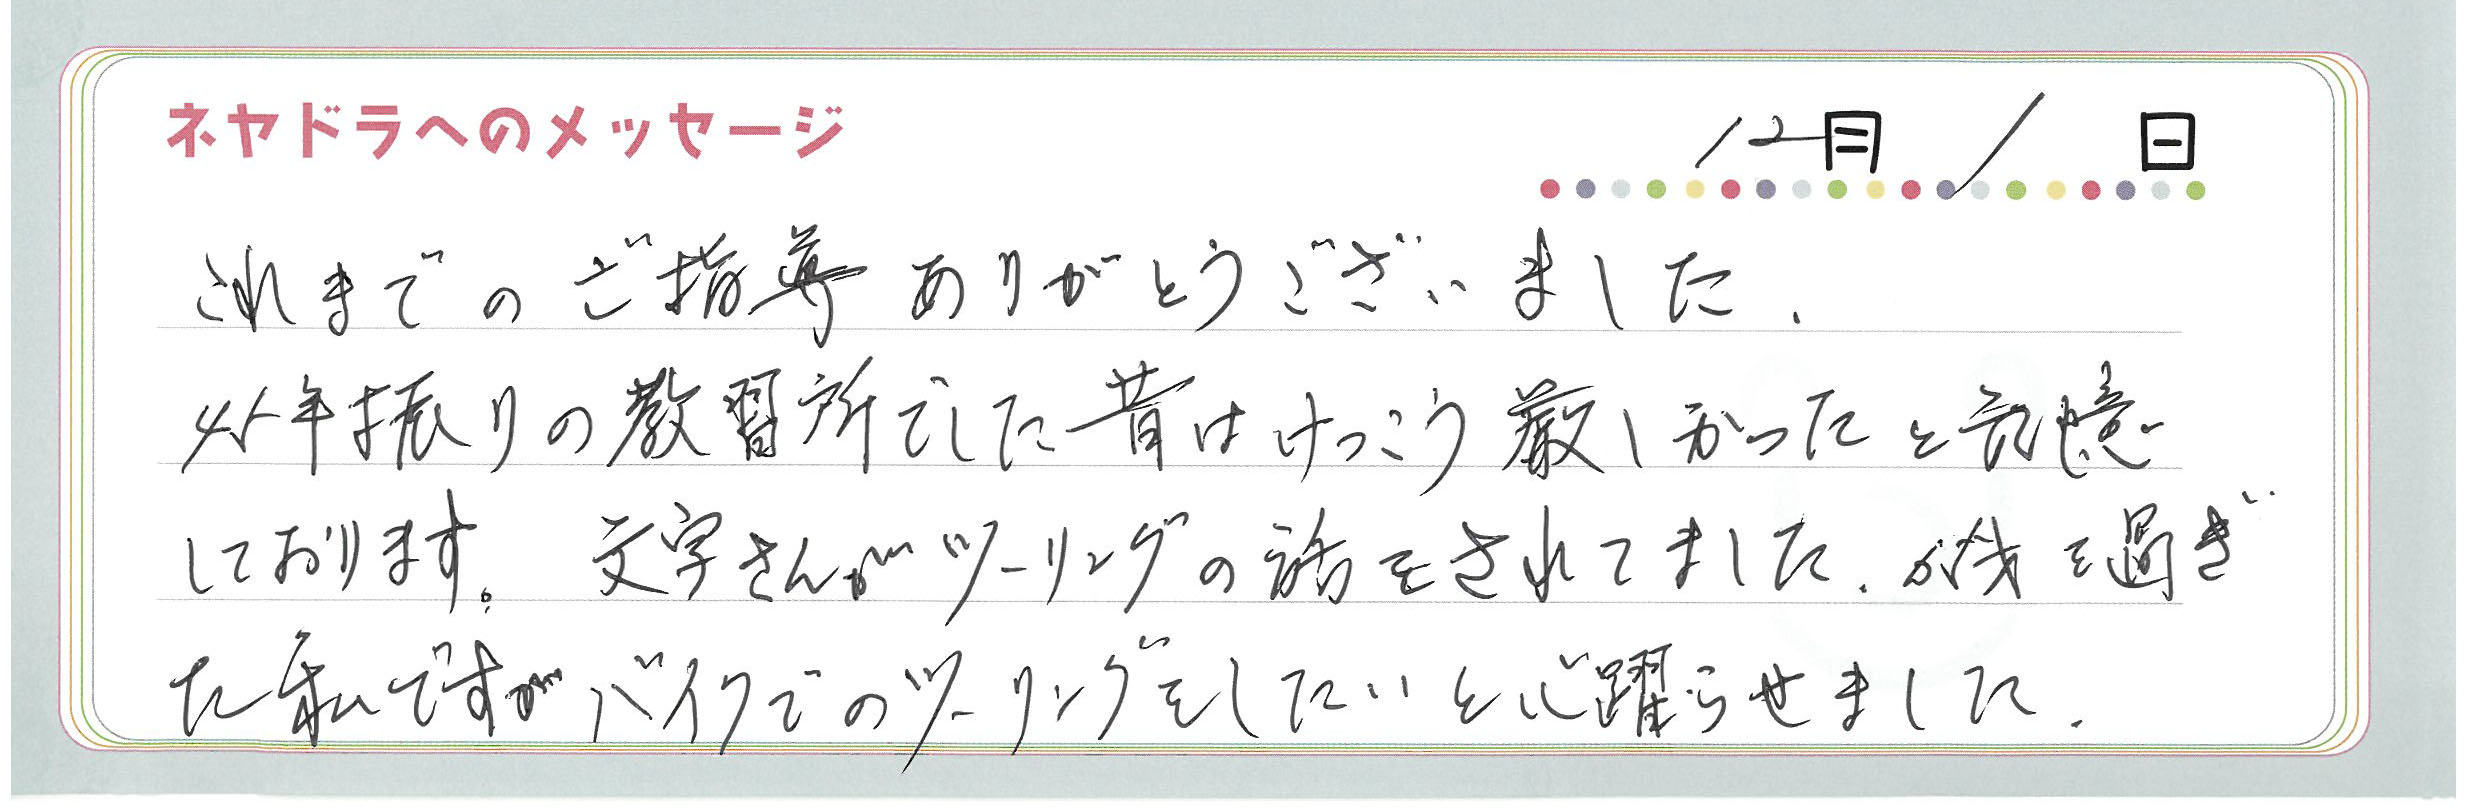 ネヤドラへのメッセージ
12月 1 日
これまでのご指導ありがとうございました.
45年振りの教習所でした昔はけっこう厳しかったと記憶
しております。 文字さんがツーリングの話をされてました. 才を過ぎ
た私ですがバイクでのツーリングをしたいと心躍らせました.